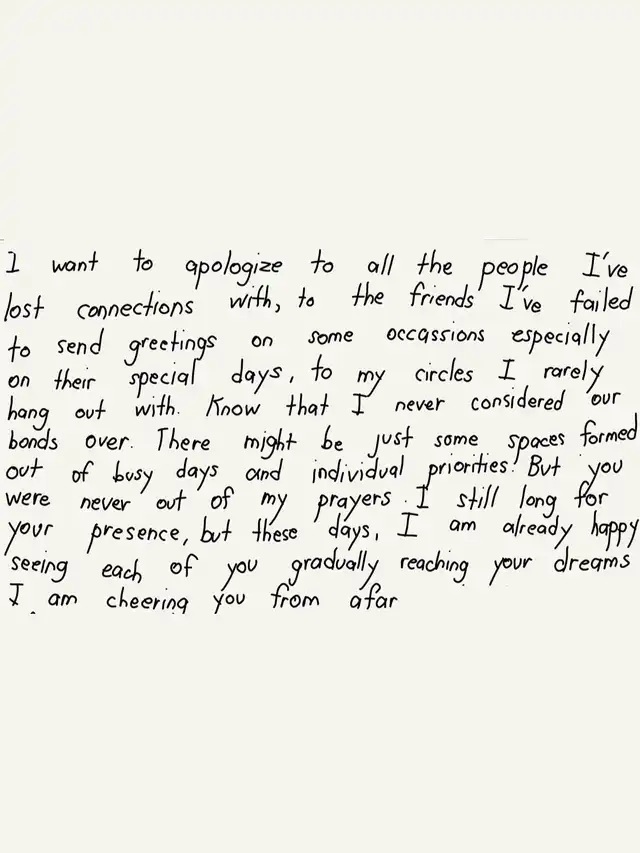 I want to apologize to all the people I've
lost connections with, to the friends I've failed
to send greetings on some occassions especially
on their special days, to my circles I rarely
hang out with. Know that I never considered our
bonds over. There might be just some spaces formed
out of busy days and individual priorities. But you
were never out of my prayers. I still long for
your presence, but these days, I am already happy
seeing each of you gradually reaching your dreams
I am cheering you from afar